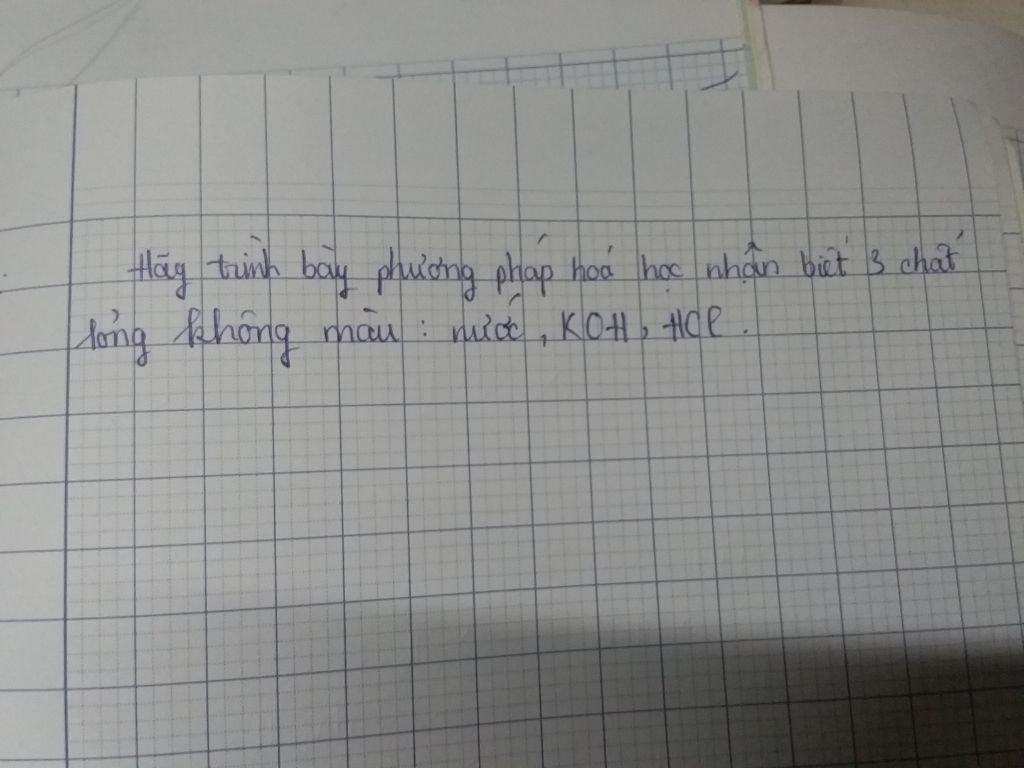 Hãy trình bày phương pháp hoá học nhận biết 3 chất
lỏng không màu : nước, KOH, HCl.